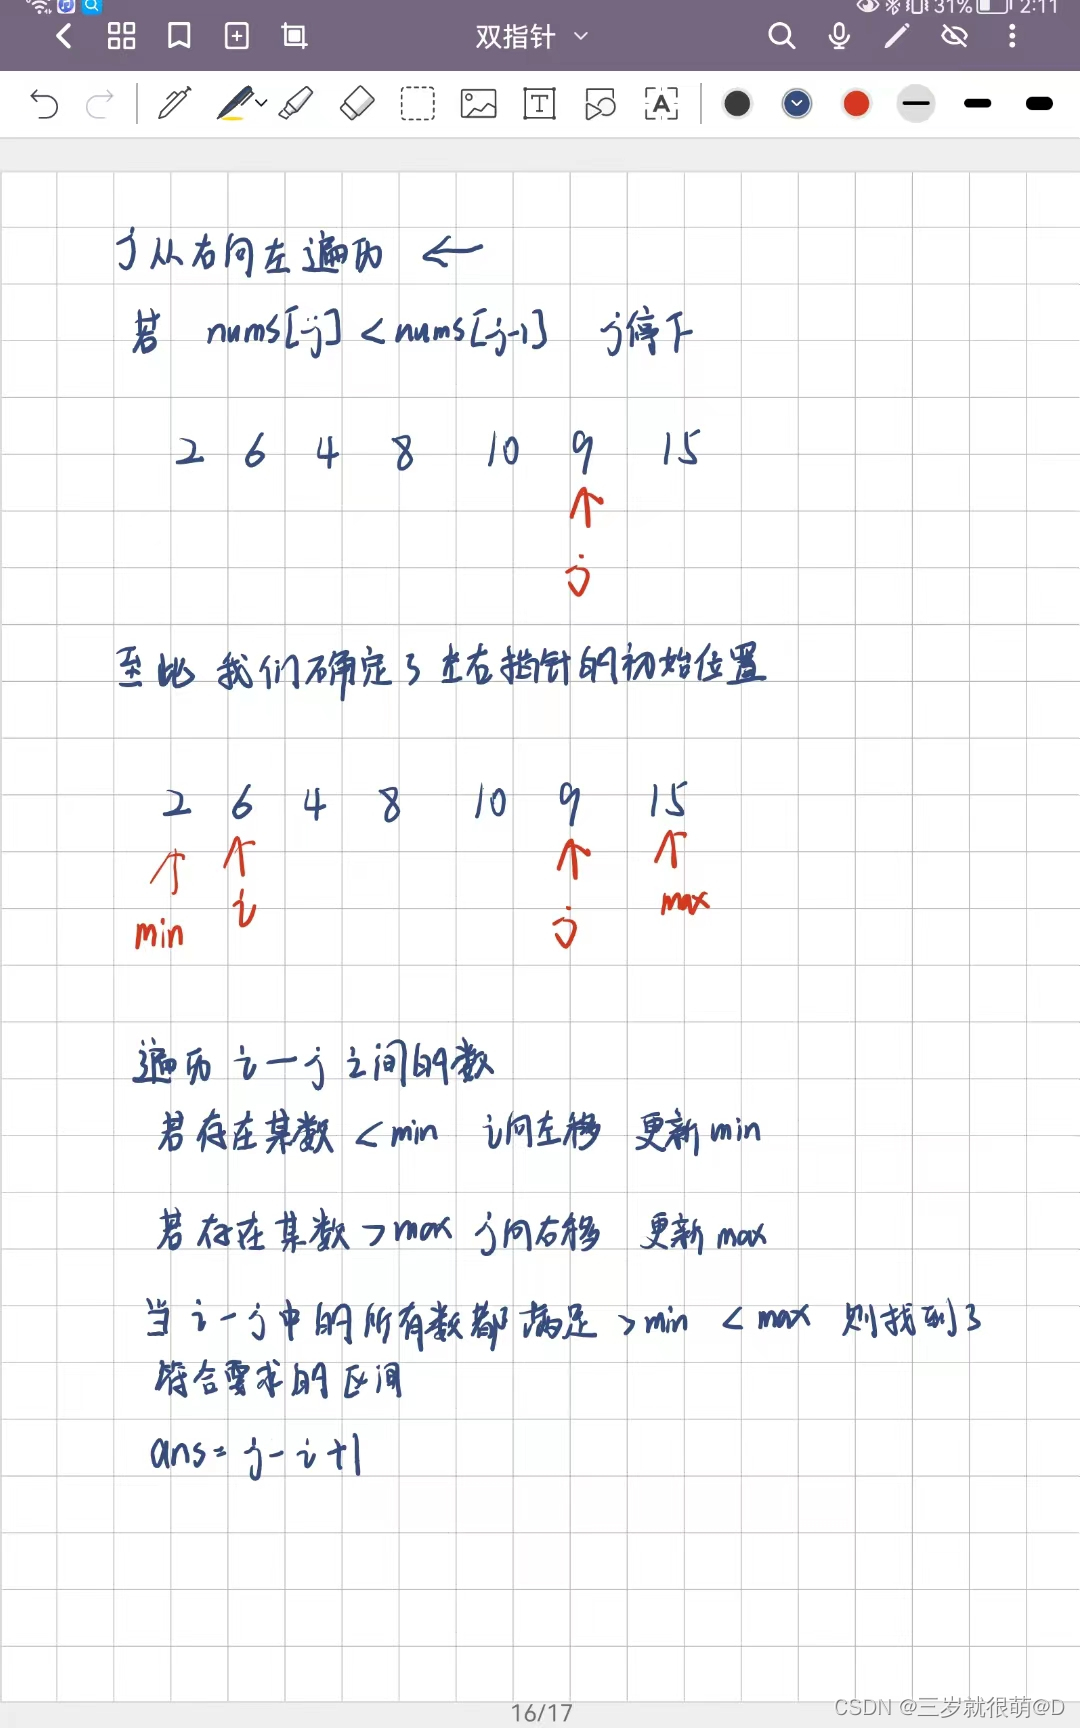 31% 2:11
双指针
T
A
j 从右向左遍历 ←
若 nums[j] < nums[j-1] j停下
2 6 4 8 10 9 15
↑
j
至此 我们确定了左右指针的初始位置
2 6 4 8 10 9 15
↑ ↑ ↑ ↑
min i j max
遍历 i-j 之间的数
若存在某数 < min i向左移 更新min
若存在某数 > max j向右移 更新max
当 i-j中的所有数都满足 > min < max 则找到了
符合要求的区间
ans = j - i + 1
16/17
CSDN @三岁就很萌@D